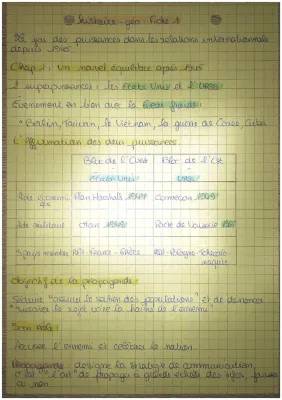 Histoire - géo : Fiche 1
Le jeu des puissances dans les relations internationales
depuis 1945
Chap 1 : Un nouvel équilibre après 1945
2 superpuissances : les Etats Unis et l'URSS
Evènement en lien avec la Guerre froide :
Berlin, Taiwan, le Vietnam, la guerre de Corée, Cuba
L'Affirmation des deux puissances
Bloc de l'Ouest Bloc de l'Est
Etats Unis URSS
Plan Marshall 1947 Comecon 1949
Aide militaire Otan 1949 Pacte de Varsovie
3 pays membres RFA - France - RDA - Pologne - Tchécoslo
vaquie
Objectif de la propagande :
Séduire "assurer le soutien des populations" et de dénoncer
la haine de l'ennemi"
Son rôle :
Accuser l'ennemi et célébrer la nation.
Propagande désigne la stratégie de communication,
c'est "l'art" de propager à grande échelle des idées, fausses
ou non